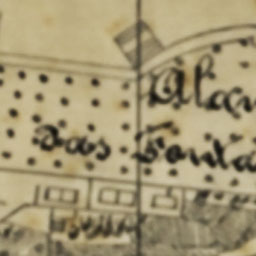 Alam
das Fonta